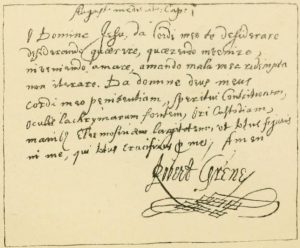 August: meditat: Cap: 1
O Domine Jesu, da Cordi meo te desiderare
desiderando quærere, quærendo invenire,
inveniendo amare, amando mala mea redempta
non iterare. Da domine deus meus
Cordi meo penitentiam, Spiritui Contritionem,
Oculis lachrymarum fontem, Ori Custodiam,
Elemosinæ Largitatem, ut totus
in me, qui totus Crucifixus p me, Amen
Robert Grene